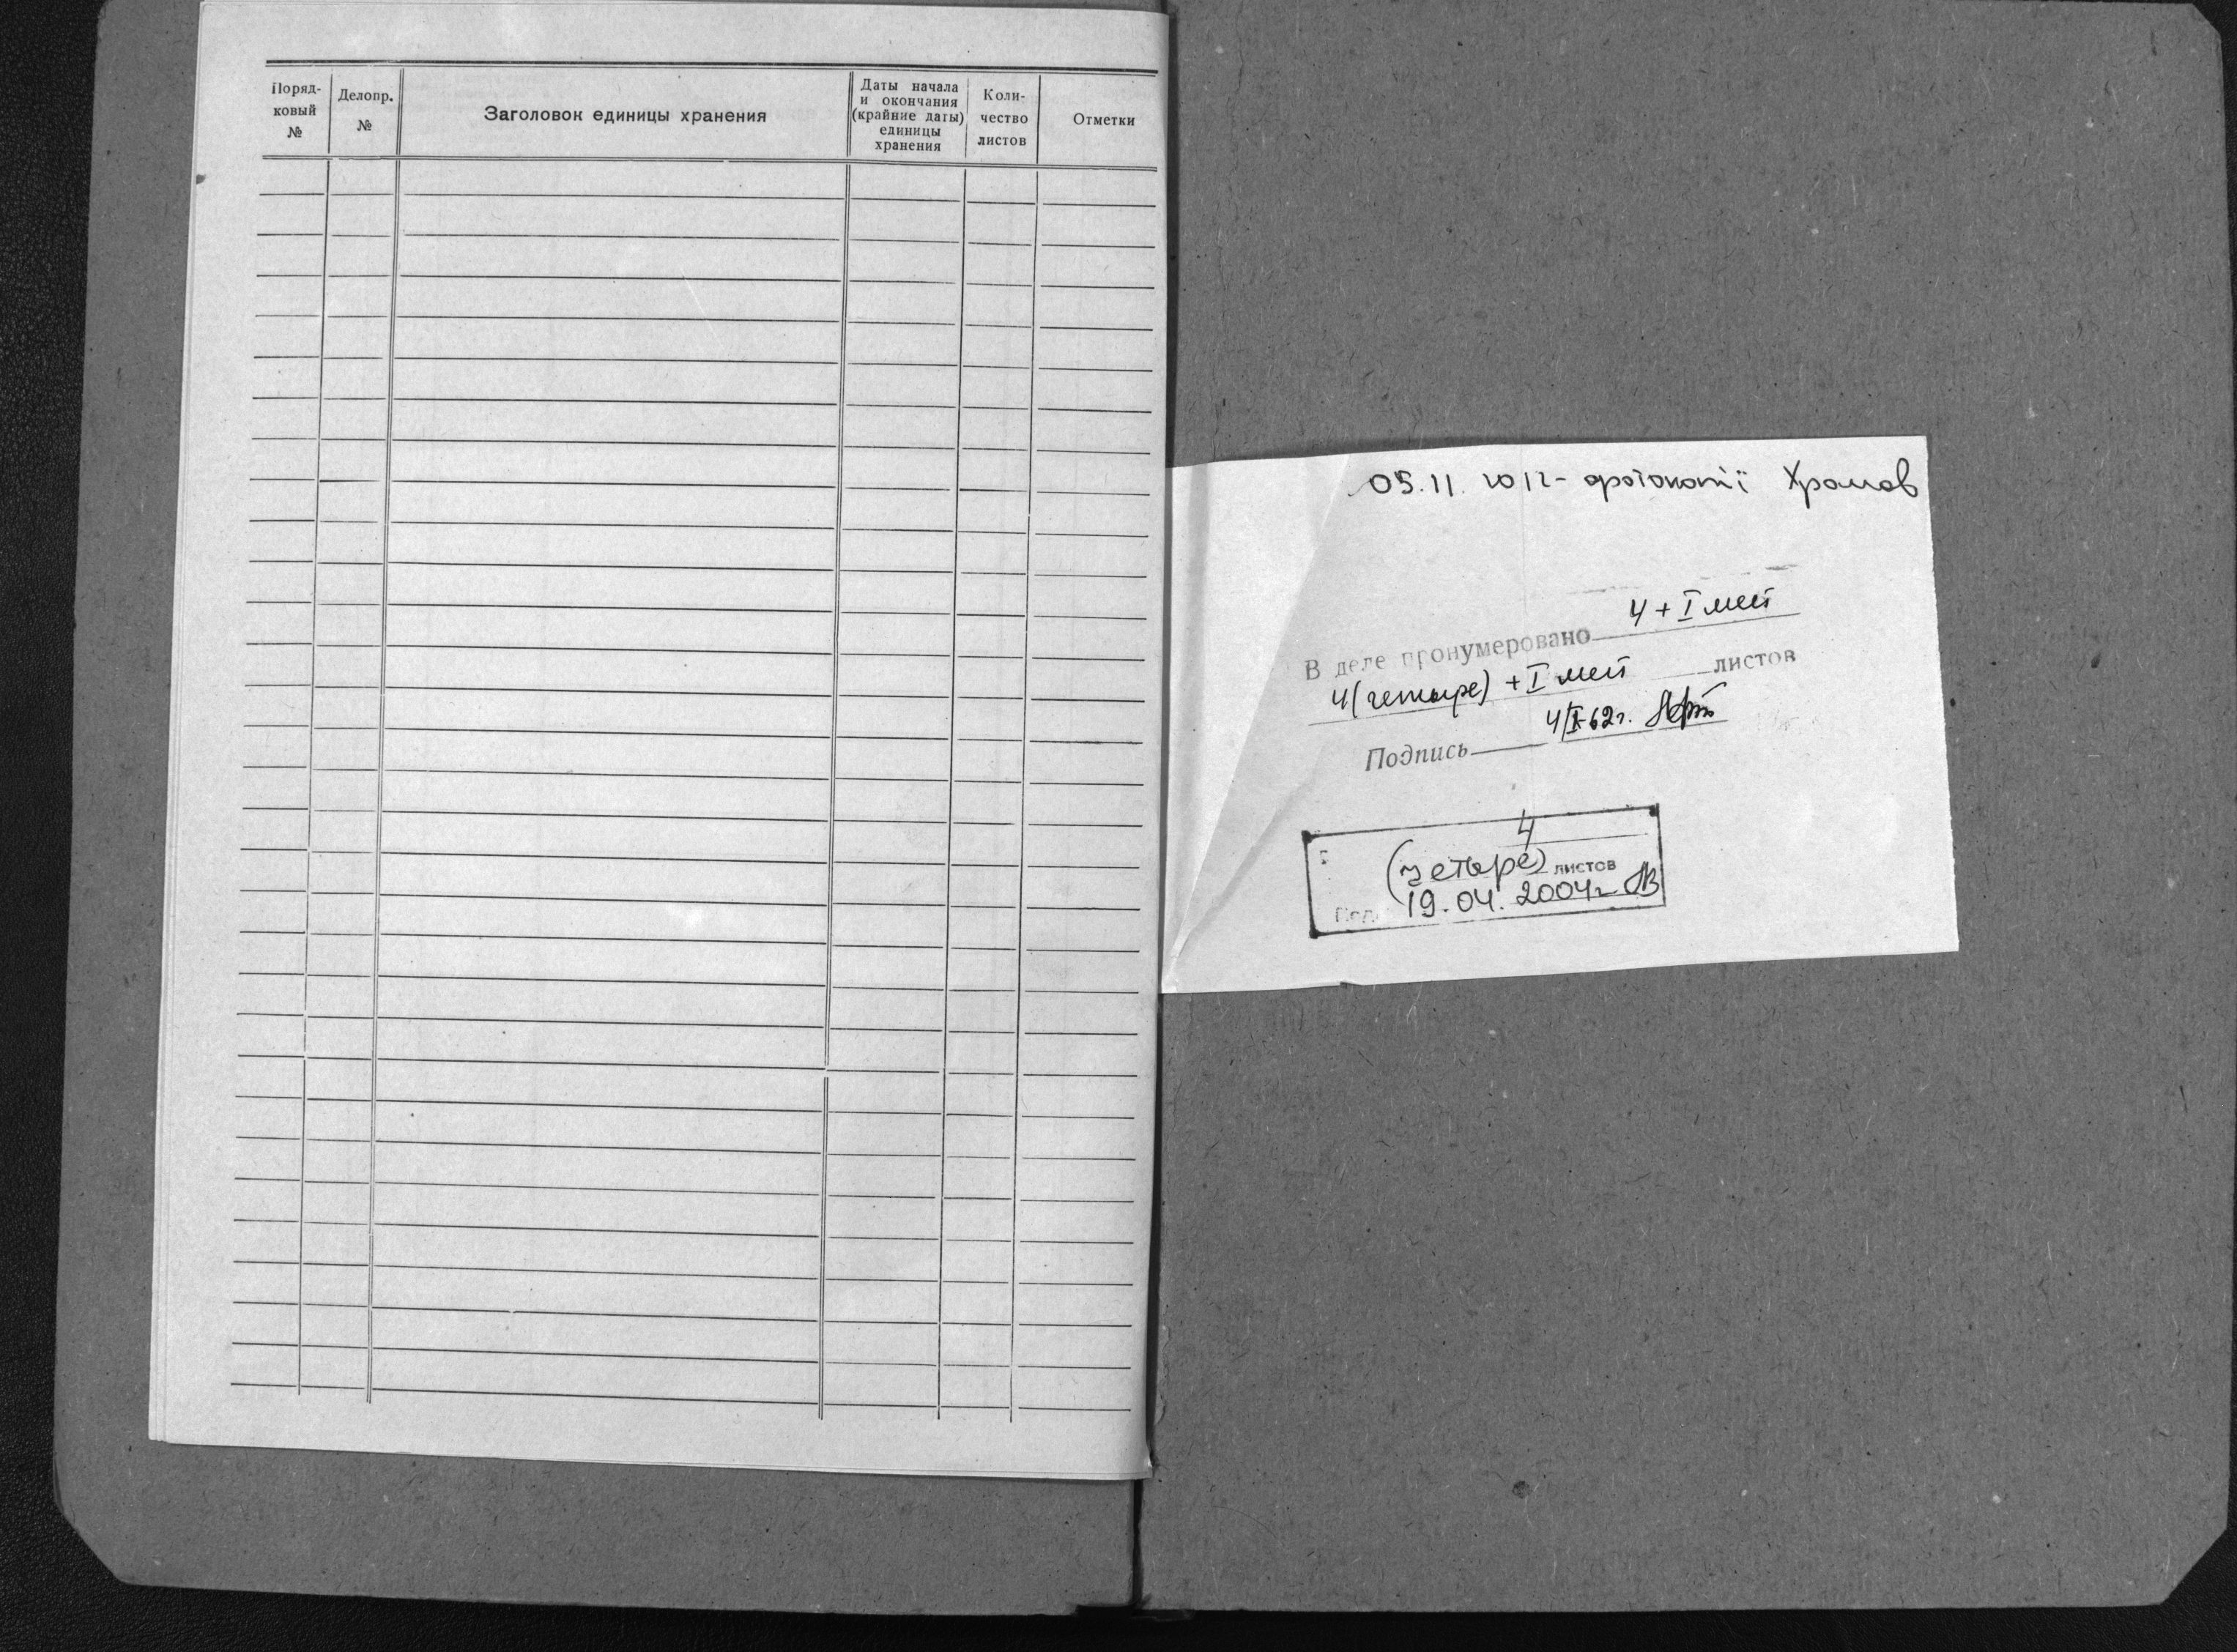 Поряд-
ковый
№
Делопр.
№
Заголовок единицы хранения
Даты начала
и окончания
(крайние даты)
единицы
хранения
Коли-
чество
листов
Отметки
05.11.2012- фотокопії Храмов
4 + I
В деле пронумеровано
4 (четыре) + I листов
4/I-62г.
Подпись
4
(четыре) листов
19.04.2004г